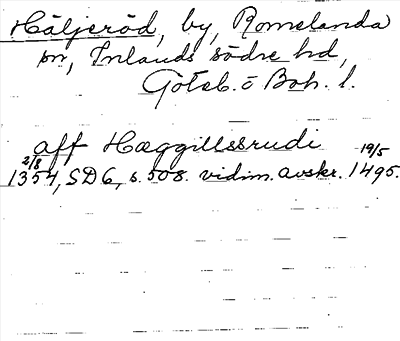 Häljeröd, by, Romelanda
sn, Inlands södre hd,
Göteb. o Boh. l.
aff Hæggillssrudi
2/8 1354, SD 6, s. 508. vidim. avskr. 19/5 1495.